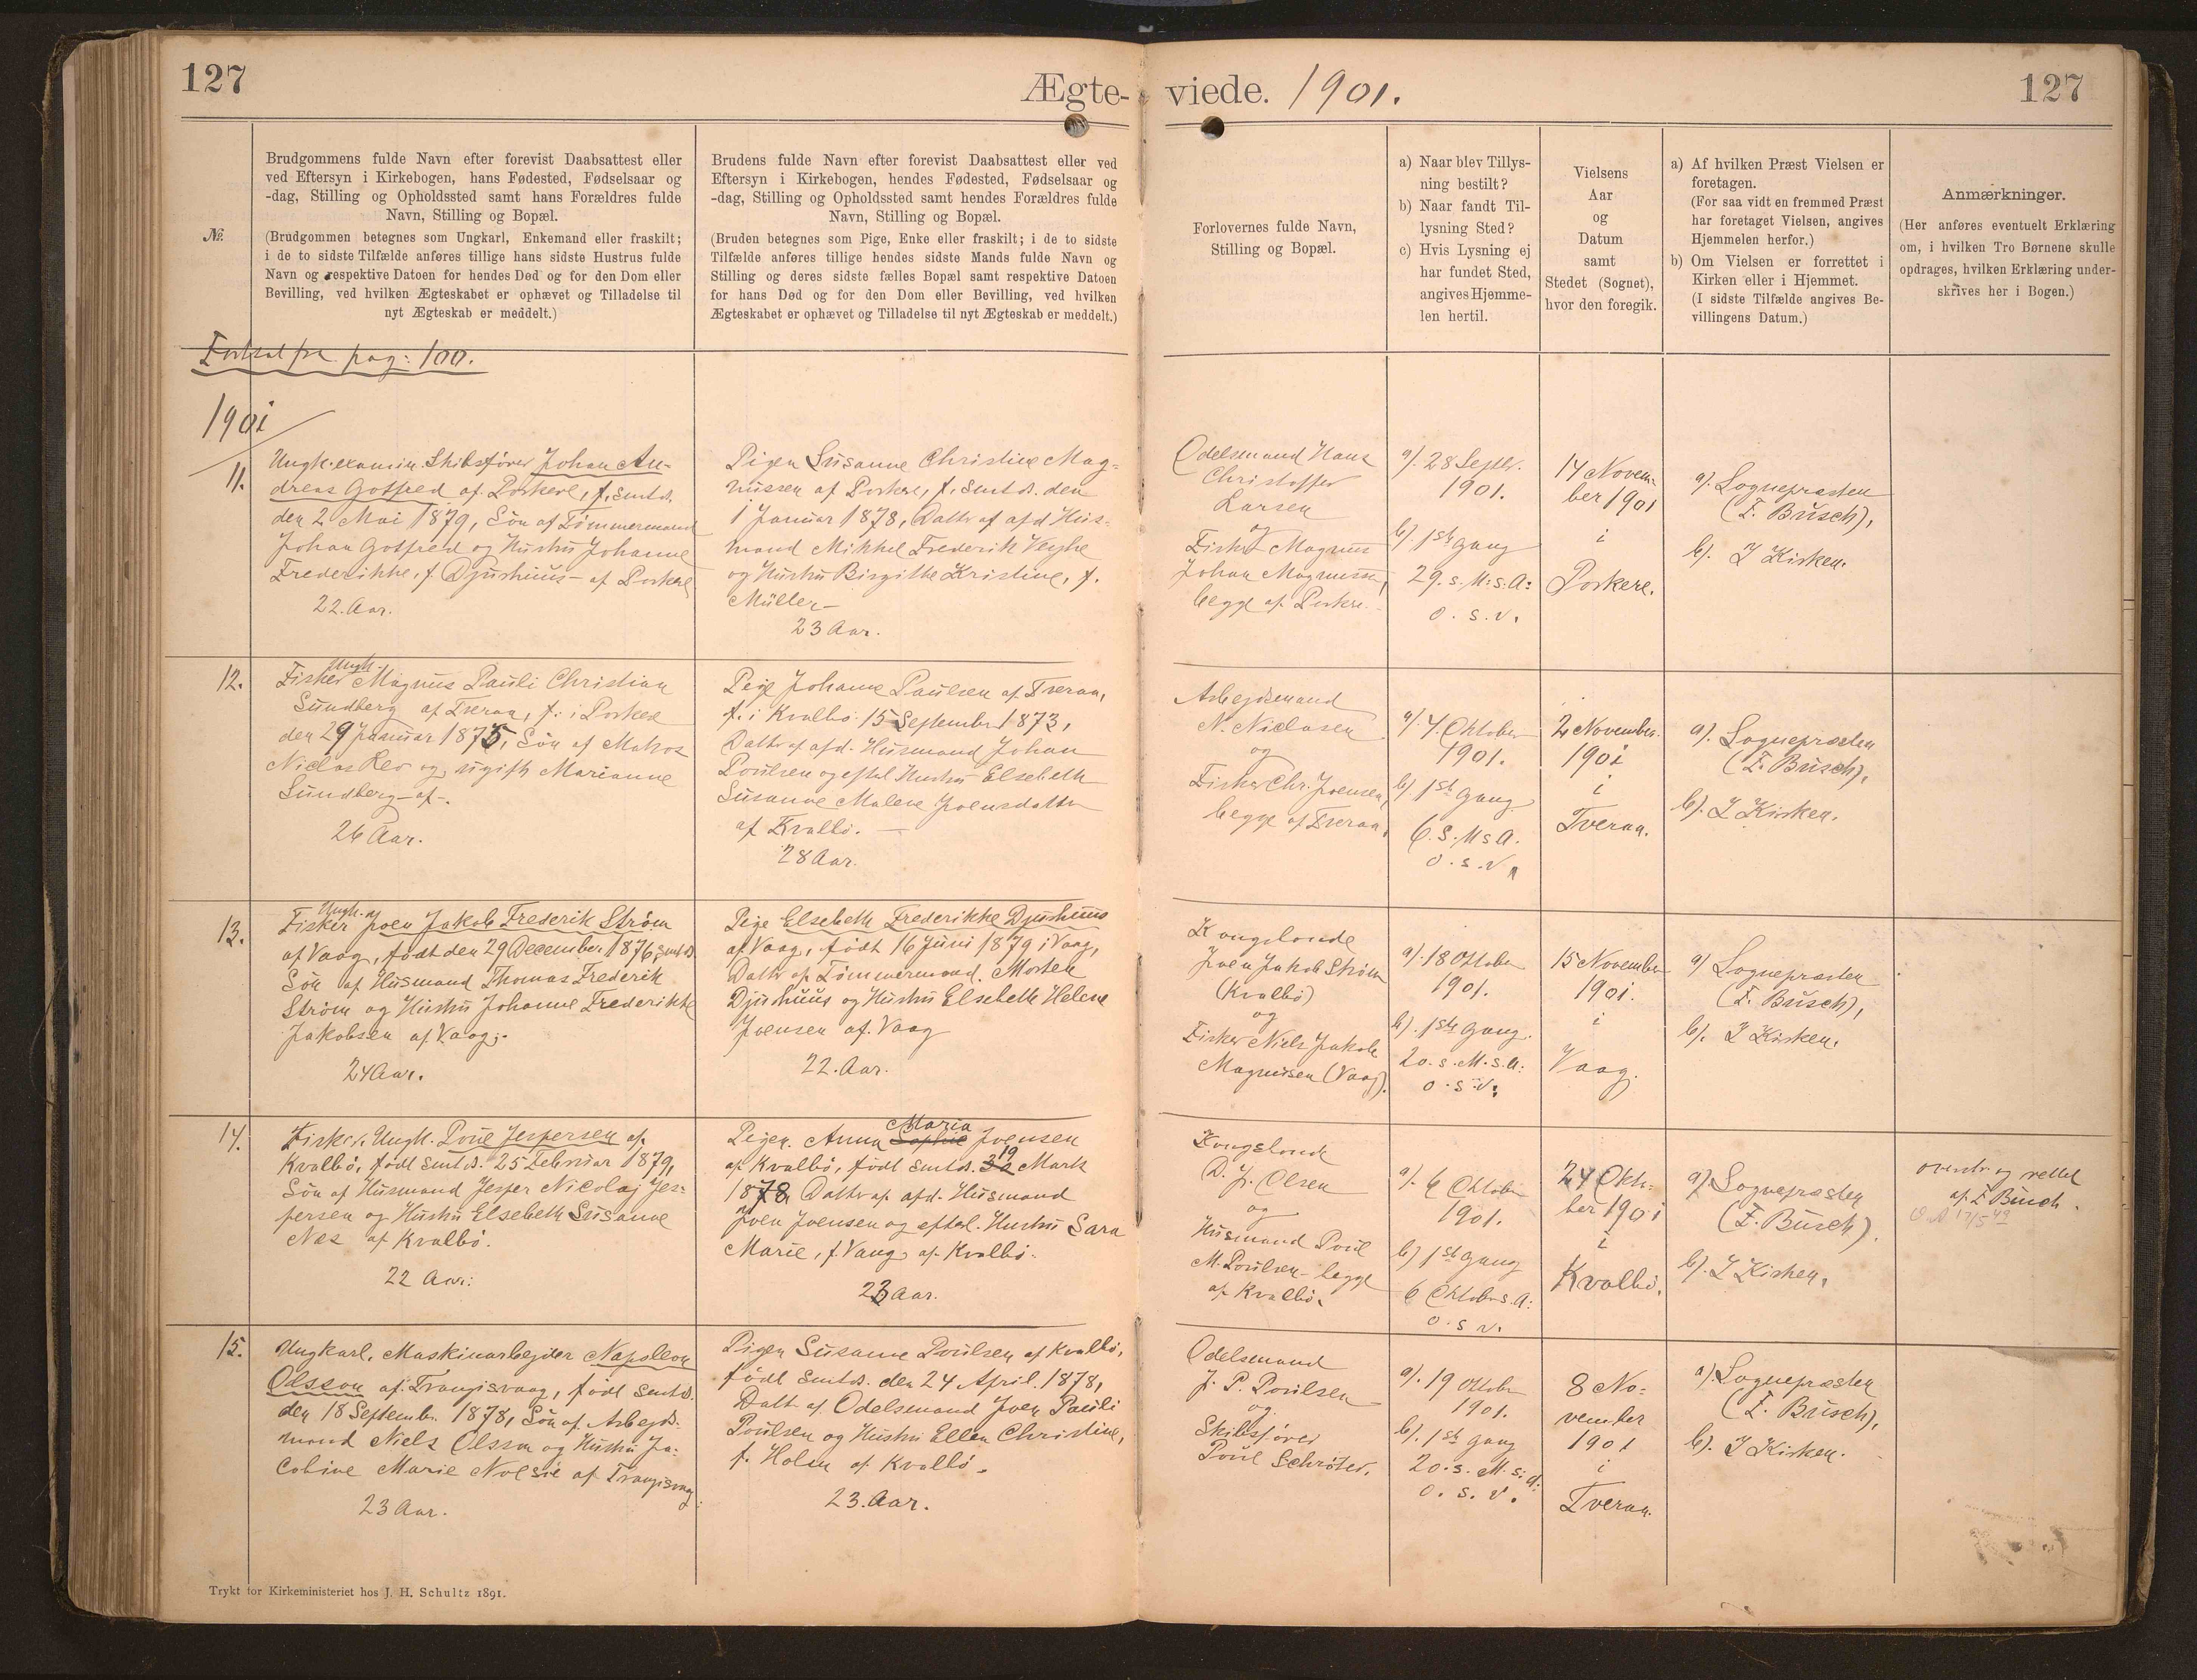 127
Ægte-
viede. 1901.
127
№
Brudgommens fulde Navn efter forevist Daabsattest eller
ved Eftersyn i Kirkebogen, hans Fødested, Fødselsaar og
-dag, Stilling og Opholdssted samt hans Forældres fulde
Navn, Stilling og Bopæl.
(Brudgommen betegnes som Ungkarl, Enkemand eller fraskilt;
i de to sidste Tilfælde anføres tillige hans sidste Hustrus fulde
Navn og respektive Datoen for hendes Død og for den Dom eller
Bevilling, ved hvilken Ægteskabet er ophævet og Tilladelse til
nyt Ægteskab er meddelt.)
Brudens fulde Navn efter forevist Daabsattest eller ved
Eftersyn i Kirkebogen, hendes Fødested, Fødselsaar og
-dag, Stilling og Opholdssted samt hendes Forældres fulde
Navn, Stilling og Bopæl.
(Bruden betegnes som Pige, Enke eller fraskilt; i de to sidste
Tilfælde anføres tillige hendes sidste Mands fulde Navn og
Stilling og deres sidste fælles Bopæl samt respektive Datoen
for hans Død og for den Dom eller Bevilling, ved hvilken
Ægteskabet er ophævet og Tilladelse til nyt Ægteskab er meddelt.)
Forlovernes fulde Navn,
Stilling og Bopæl.
a) Naar blev Tillys-
ning bestilt?
b) Naar fandt Til-
lysning Sted?
c) Hvis Lysning ej
har fundet Sted,
angives Hjemme-
len hertil.
Vielsens
Aar
og
Datum
samt
Stedet (Sognet),
hvor den foregik.
a) Af hvilken Præst Vielsen er
foretagen.
(For saa vidt en fremmed Præst
har foretaget Vielsen, angives
Hjemmelen herfor.)
b) Om Vielsen er forrettet i
Kirken eller i Hjemmet.
(I sidste Tilfælde angives Be-
villingens Datum.)
Anmærkninger.
(Her anføres eventuelt Erklæring
om, i hvilken Tro Børnene skulle
opdrages, hvilken Erklæring under-
skrives her i Bogen.)
Fortsat fra pag: 100.
1901
11.
Ungk. examin. Skibsfører Johan An-
dreas Gotfred af Porkere, f. smtds.
den 2 Mai 1879, Søn af Tømmermand
Johan Gotfred og Hustru Johanne
Frederikke, f. Djurhuus - af Porkere
22. Aar.
Pigen Susanne Christine Mag-
nussen af Porkere, f. smtds. den
1 Januar 1878, Datter af afd. Hus-
mand Mikkel Frederik Vejhe
og Hustru Birgithe Kristine, f.
Müller -
23 Aar.
Odelsmand Hans
Christoffer
Larsen
og
Fisker Magnus
Johan Magnussen,
begge af Porkere.
a). 28 Septbr.
1901.
b). 1ste Gang
29. s. M: s. A:
o. s. v.
14 Novem-
ber 1901
i
Porkere.
a). Sognepræsten
(F. Busch),
b). I Kirken.
12.
Ungk.
Fisker Magnus Pauli Christian
Sundberg af Tveraa, f. i Porkere
den 29 Januar 1875, Søn af Matros
Niclas Rev og ugift Marianne
Sundberg - af -.
26 Aar.
Pige Johanne Paulsen af Tveraa,
f. i Kvalbø 15 September 1873,
Datter af afd. Husmand Johan
Poulsen og eftel. Hustru Elsebeth
Susanne Malene Joensdatter
af Kvalbø. -
28 Aar.
Arbejdsmand
N. Niclasen
og
Fisker Chr. Joensen,
begge af Tveraa.
a). 4. Oktober
1901.
b). 1ste Gang
6. S. M s A.
o. s. v.
2 November
1901
i
Tveraa.
a). Sognepræsten
(F. Busch),
b). I Kirken.
13.
Ungk. og
Fisker Joen Jakob Frederik Strøm
af Vaag, født den 29 December 1876, smtds
Søn af Husmand Thomas Frederik
Strøm og Hustru Johanne Frederikke
Jakobsen af Vaag.
24 Aar.
Pige Elsebeth Frederikke Djurhuus
af Vaag, født 16 Juni 1879 i Vaag,
Datter af Tømmermand. Morten
Djurhuus og Hustru Elsebeth Helene
Joensen af Vaag
22. Aar.
Kongsbonde
Joen Jakob Strøm
(Kvalbø)
og
Fisker Niels Jakob
Magnussen (Vaag).
a). 18 Oktober
1901.
b). 1ste Gang.
20. s. M. s. A:
o. s. v.
15 November
1901.
i
Vaag.
a) Sognepræsten
(F. Busch),
b). I Kirken.
14.
Fisker. Ungk. Poul Jespersen af
Kvalbø, født smtds. 25 Februar 1879,
Søn af Husmand Jesper Nicolaj Jes-
persen og Hustru Elsebeth Susanne
Næs af Kvalbø.
22 Aar:
Maria
Pigen. Anna Sophie Joensen
19
af Kvalbø, født smtds. 32 Marts
1878, Datter af afd. Husmand
Joen Joensen og efterl. Hustru Sara
Marie, f. Vang af Kvalbø.
23 Aar.
Kongsbonde
D. J. Olsen
og
Husmand Poul
M. Poulsen - begge
af Kvalbø.
a). 6 Oktober
1901.
b) 1ste Gang
6 Oktober s. A:
o. s. v.
24 Okto-
ber 1901
i
Kvalbø.
a). Sognepræsten
(F. Busch).
b). I Kirken.
overstr. og rettet
af F. Busch.
17/5 49
15.
Ungkarl. Maskinarbejder Napoleon
Olsson af Trangisvaag, født smtds.
den 18 Septembr. 1878, Søn af Arbejds-
mand Niels Olsson og Hustru Ja-
cobine Marie Nolsøe af Trangisvaag
23 Aar.
Pigen Susanne Poulsen af Kvalbø,
født smtds. den 24 April. 1878,
Datt. af Odelsmand Joen Pauli
Poulsen og Hustru Ellen Christine,
f. Holm af Kvalbø.
23. Aar.
Odelsmand
J. P. Poulsen
og
Skibsfører
Poul Schrøter.
a). 19 Oktober
1901.
b). 1ste Gang
20. s. M. s: A:
o. s. v.
8 No-
vember
1901
i
Tveraa.
a). Sognepræsten
(F. Busch),
b). I Kirken.
Trykt for Kirkeministeriet hos J. H. Schultz 1891.